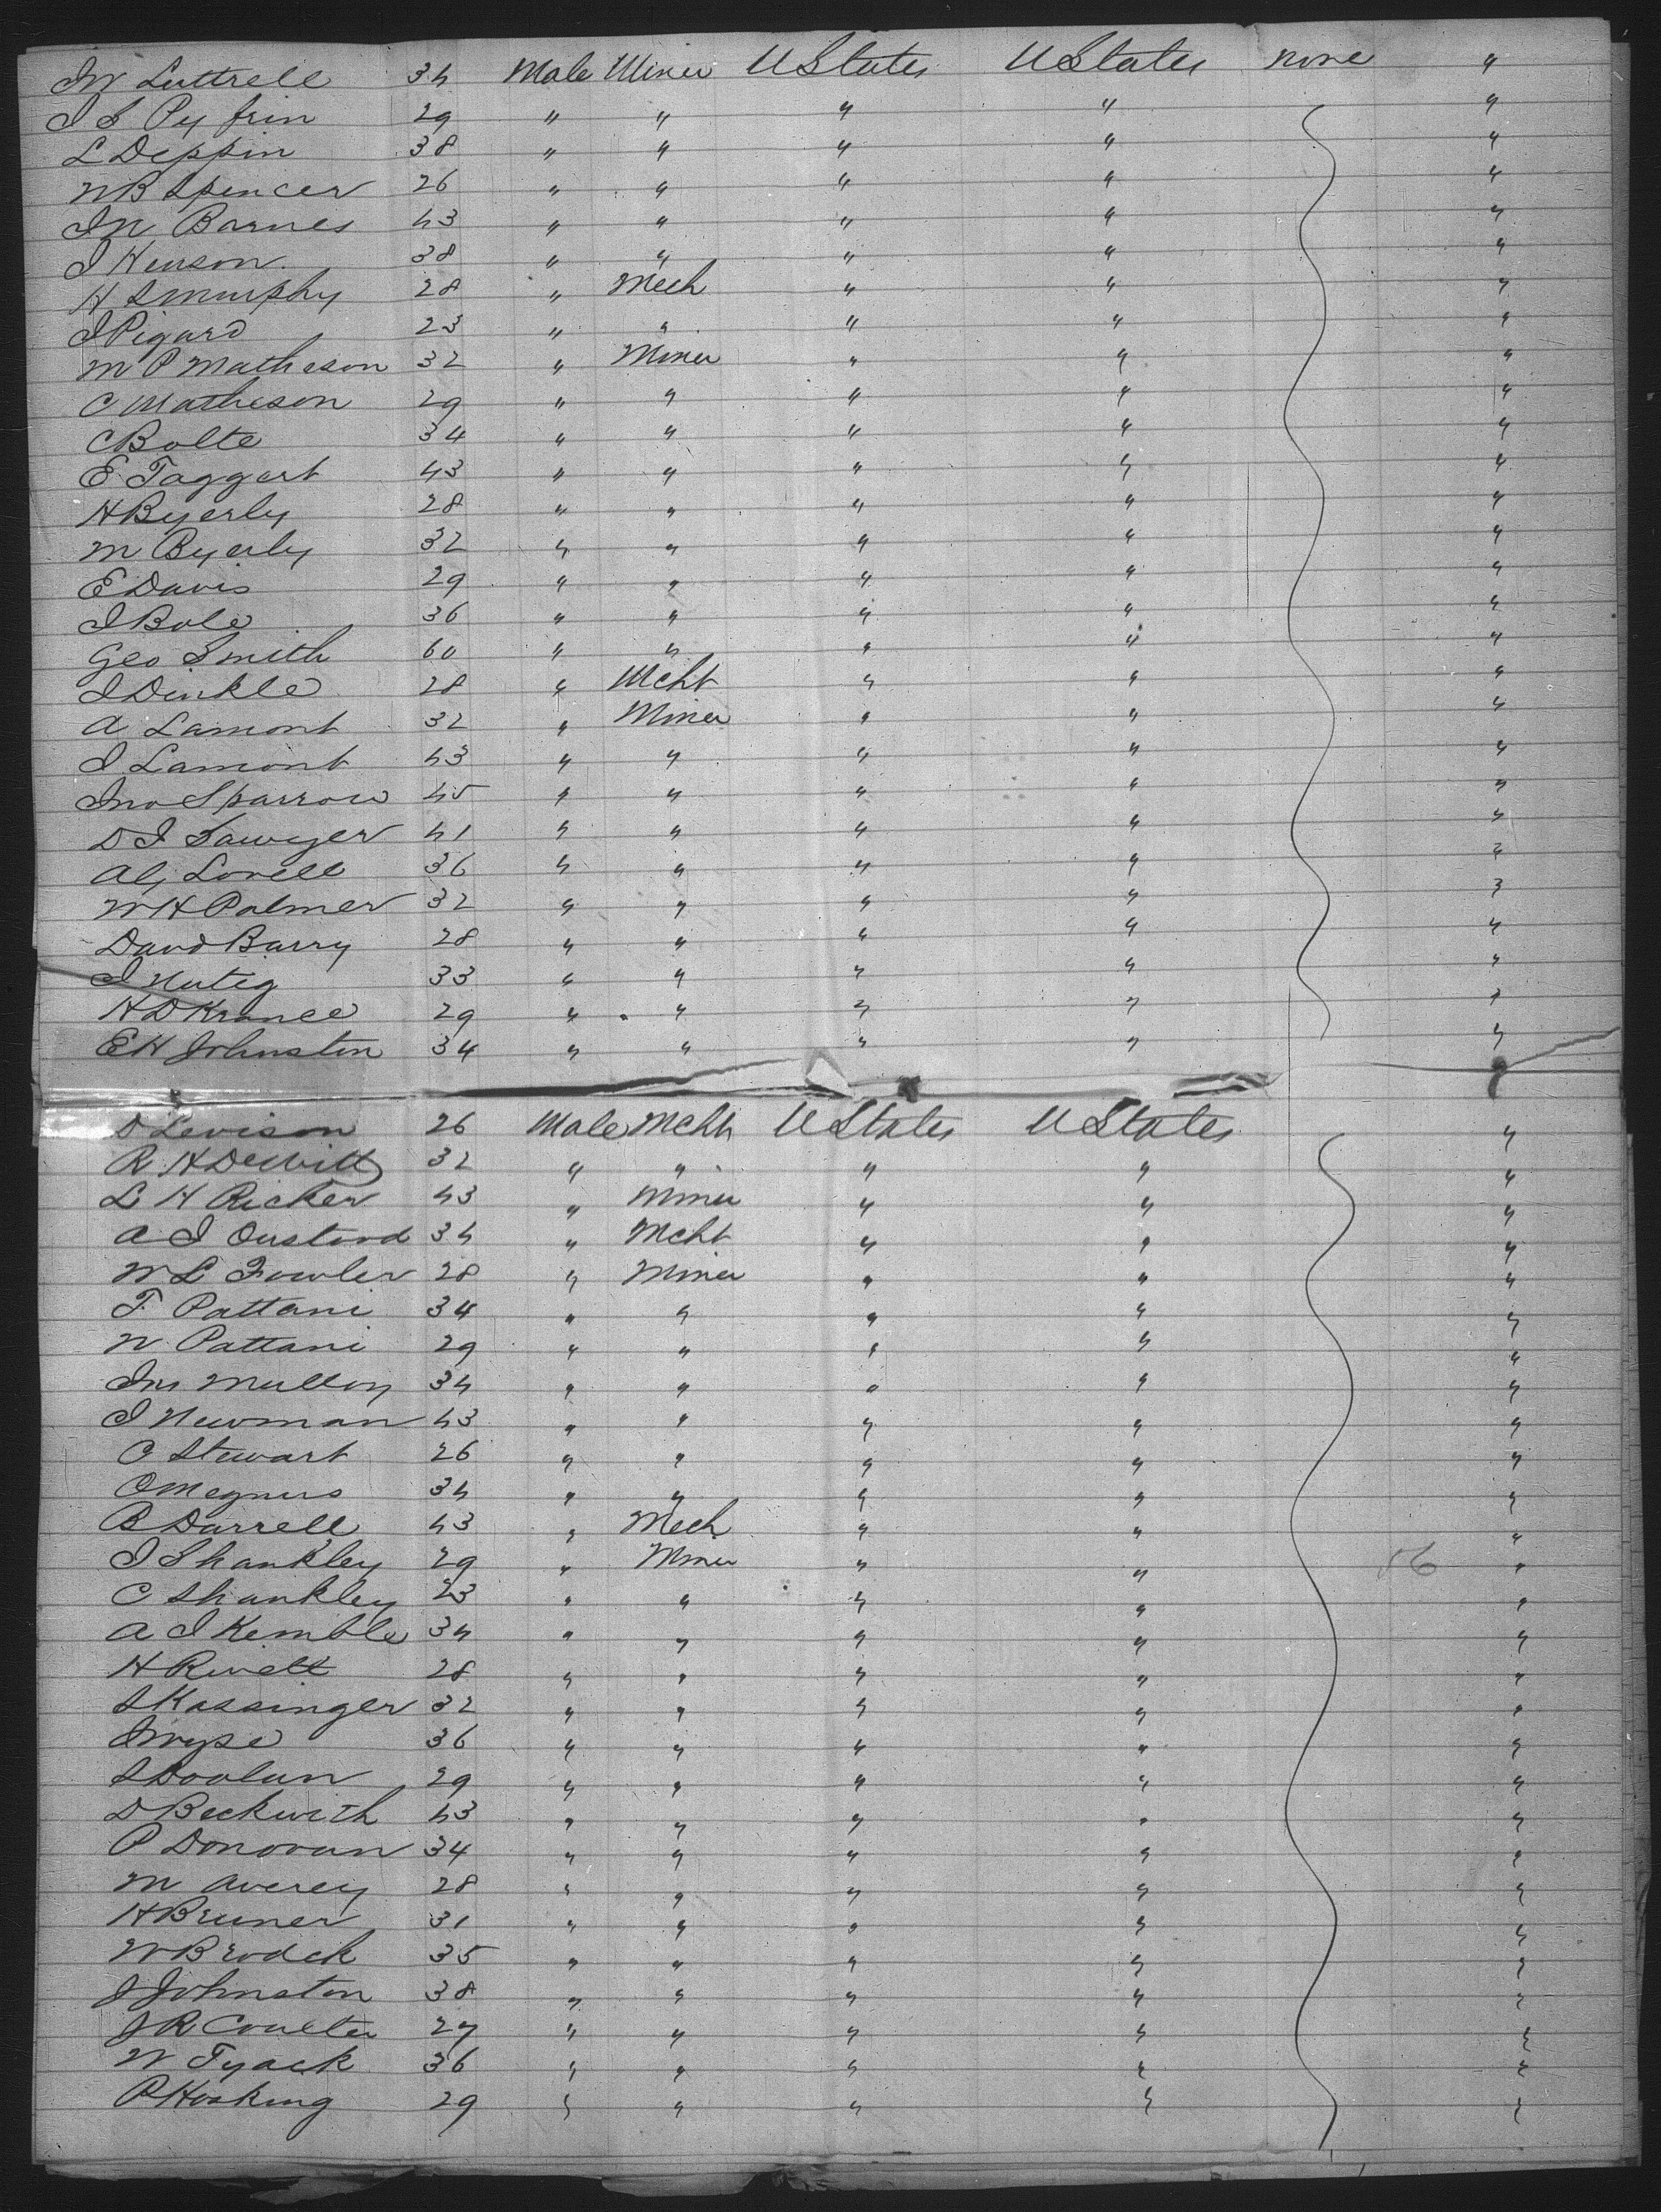 JW Luttrell 34 Male Miner U States U States none "
J S Pyfrin 29 " " " " "
L Deppin 38 " " " " "
W B Spencer 26 " " " " "
J N Barnes 43 " " " " "
J Henson 38 " " " " "
H S Murphy 28 " Mech " " "
J Pigard 23 " " " " "
M P Matheson 32 " Miner " " "
C Matheson 29 " " " " "
C Bolte 34 " " " " "
E Taggert 43 " " " " "
H Byerly 28 " " " " "
M Byerly 32 " " " " "
E Davis 29 " " " " "
J Bole 36 " " " " "
Geo Smith 60 " " " " "
J Dinkle 28 " Mcht " " "
A Lamont 32 " Miner " " "
J Lamont 43 " " " " "
Jno Sparrow 45 " " " " "
D J Sawyer 41 " " " " "
Lovell 36 " " " " "
W H Palmer 32 " " " " "
David Barry 28 " " " " "
J Nuteg 33 " " " " "
H D Krance 29 " " " " "
E H Johnston 34 " " " " "
D Levison 26 Male Mcht U States U States "
R H DeWitt 32 " " " " "
L H Ricker 43 " Miner " " "
A J Oustord 34 " Mcht " " "
W L Fowler 28 " Miner " " "
T Pattani 34 " " " " "
W Pattani 29 " " " " "
Jno Mulloy 34 " " " " "
J Newman 43 " " " " "
C Stewart 26 " " " " "
O Megnus 34 " " " " "
B Darrell 43 " Mech " " "
J Shankley 29 " Miner " " "
C Shankley 23 " " " " "
A J Kemble 34 " " " " "
H Rivett 28 " " " " "
S Kassinger 32 " " " " "
J Wyse 36 " " " " "
S Doolan 29 " " " " "
D Beckwith 43 " " " " "
P Donovan 34 " " " " "
M Averey 28 " " " " "
H Bruner 31 " " " " "
W Brodek 35 " " " " "
J Johnston 38 " " " " "
J R Coulter 27 " " " " "
W Tyack 36 " " " " "
P Hosking 29 " " " " "